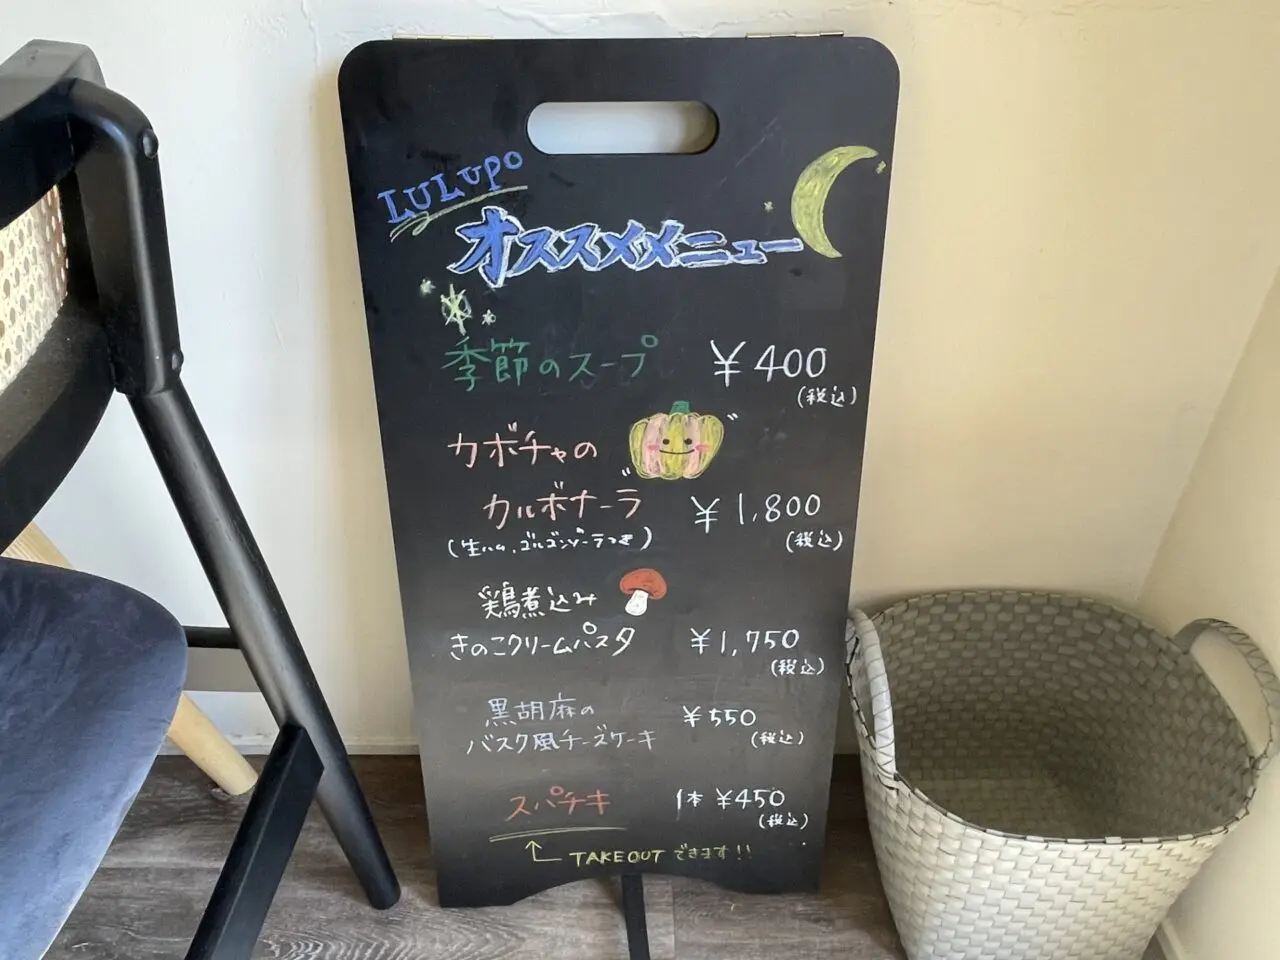 LULUPO
オススメメニュー
季節のスープ ¥400
(税込)
カボチャの
カルボナーラ ¥1,800
(生ハム、ゴルゴンゾーラつき) (税込)
鶏煮込み
きのこクリームパスタ ¥1,750
(税込)
黒胡麻の ¥550
バスク風チーズケーキ (税込)
スパチキ 1本 ¥450
(税込)
TAKEOUT できます!!